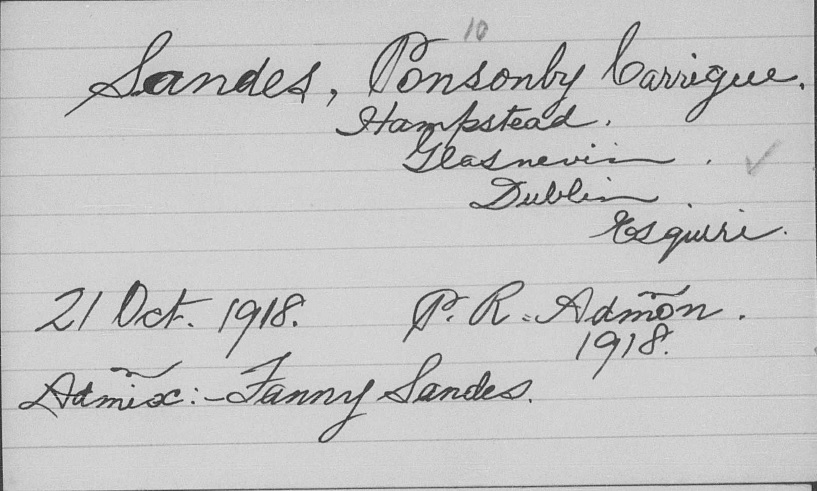 10
Sandes, Ponsonby Carrigue.
Hampstead.
Glasnevin.
Dublin
Esquire.
21 Oct. 1918. P. R. Admōn.
1918.
Admix:- Fanny Sandes.